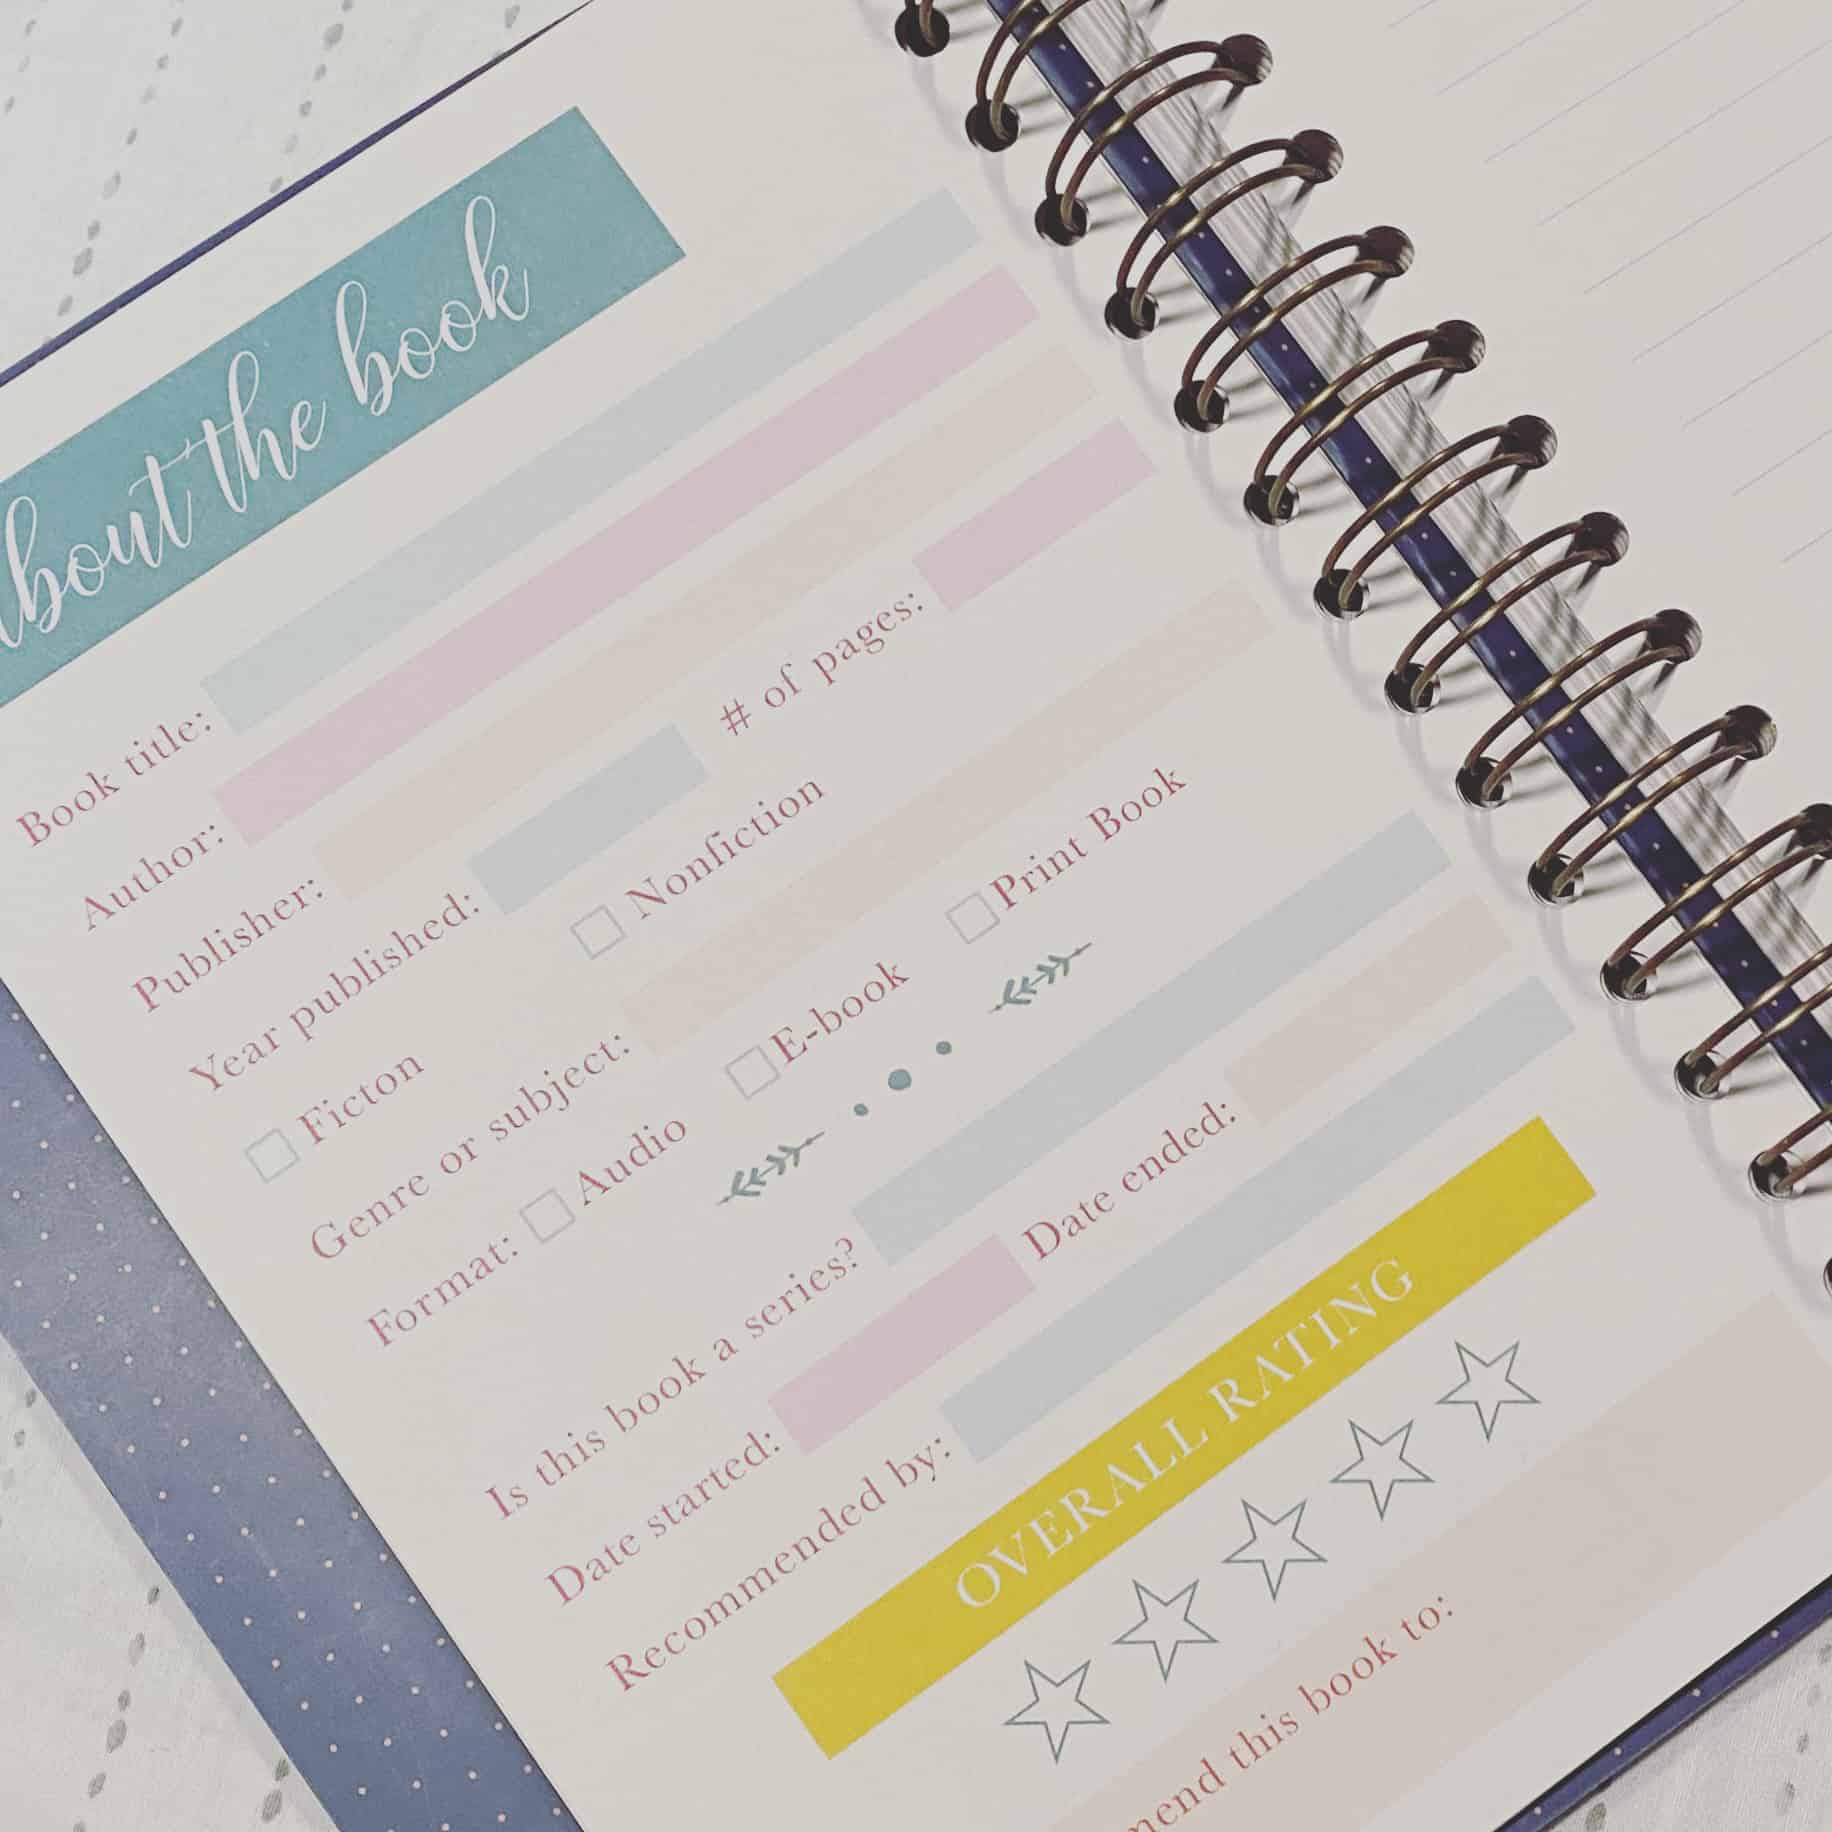 About the book
Book title:
Author:
Publisher:
Year published: # of pages:
Ficton Nonfiction
Genre or subject:
Format: Audio E-book Print Book
Is this book a series?
Date started: Date ended:
Recommended by:
OVERALL RATING
this book to: